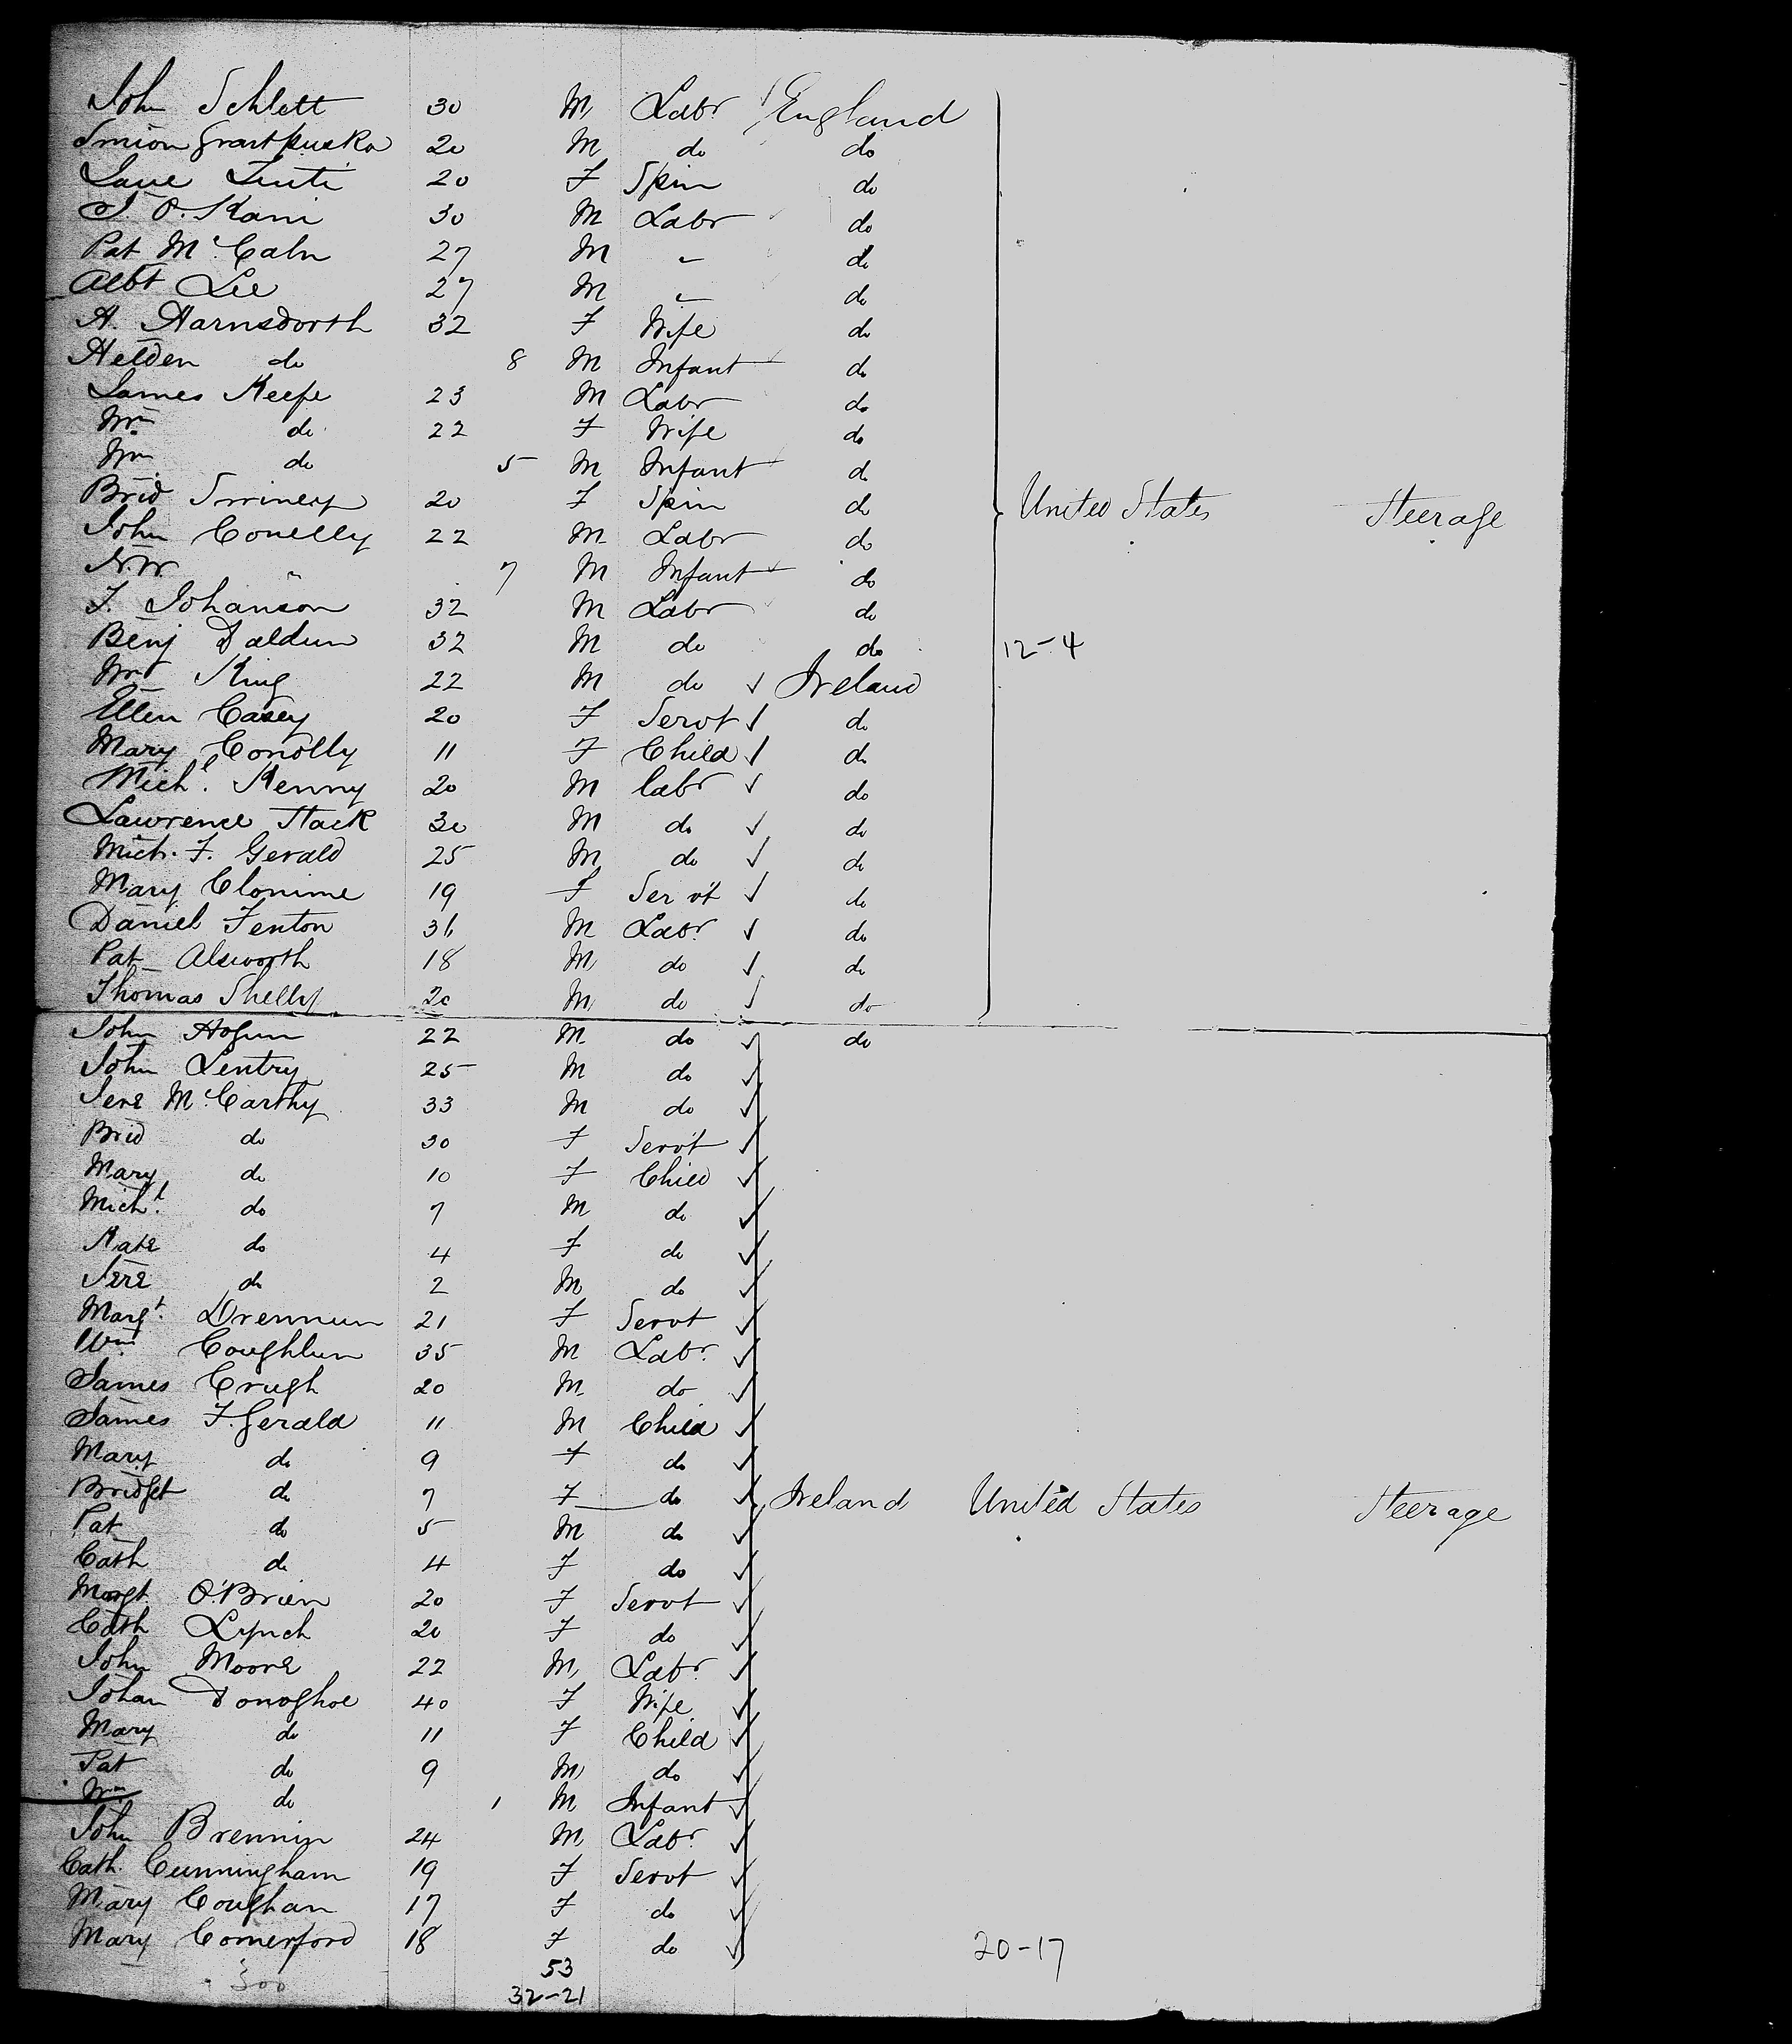 John Schlett 30 M Labr England
Simion Grastkuska 20 M do do
Jane Tuiti 20 F Spin do
J. O. Kani 30 M Labr do
Pat McCabn 27 M " do
Albt Lee 27 M " do
A. Harnsdorth 32 F Wife do
Helden do 8 M Infant do
James Keefe 23 M Labr do
Wm do 22 F Wife do
Wm do 5 M Infant do
Brid Sweeney 20 F Spin do United States Steerage
John Conelly 22 M Labr do
N.W. " 7 M Infant do
F. Johanson 32 M Labr do
Benj Daldun 32 M do do 12-4
Wm King 22 M do Ireland
Ellen Casey 20 F Servt do
Mary Conolly 11 F Child do
Michl. Kenny 20 M labr do
Lawrence Stack 30 M do do
Mich. F. Gerald 25 M do do
Mary Clonime 19 F Servt do
Daniel Fenton 31 M Labr. do
Pat Alsworth 18 M do do
Thomas Shelly 20 M do do
John Hogun 22 M do do
John Lentry 25 M do
Jere McCarthy 33 M do
Brid do 30 F Servt
Mary do 10 F Child
Michl. do 7 M do
Kate do 4 F do
Jere do 2 M do
Margt. Drennun 21 F Servt
Wm. Coughlun 35 M Labr.
James Crugh 20 M do
James F.Gerald 11 M Child
Mary do 9 F do
Bridget do 7 F do Ireland United States Steerage
Pat do 5 M do
Cath do 4 F do
Margt. O'Brien 20 F Servt
Cath Lynch 20 F do
John Moore 22 M Labr.
Johan Donoghoe 40 F Wife
Mary do 11 F Child
Pat do 9 M do
Wm do 1 M Infant
John Brennin 24 M Labr.
Cath. Cunningham 19 F Servt
Mary Coughan 17 F do
Mary Comerford 18 F do 20-17
300 53
32-21